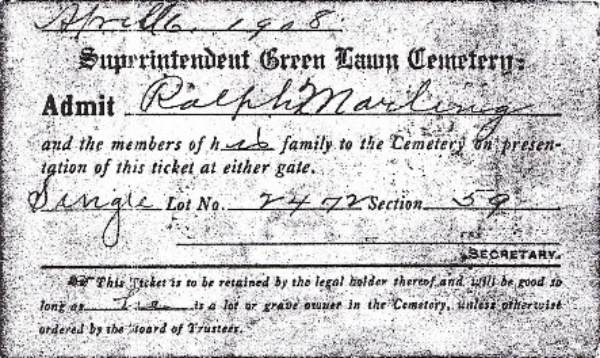 April 6, 1908.
Superintendent Green Lawn Cemetery:
Admit Ralph Marling
and the members of his family to the Cemetery on presen-
tation of this ticket at either gate.
Single Lot No. 2472 Section 59
SECRETARY.
This Ticket is to be retained by the legal holder thereof and will be good so
long as he is a lot or grave owner in the Cemetery, unless otherwise
ordered by the Board of Trustees.